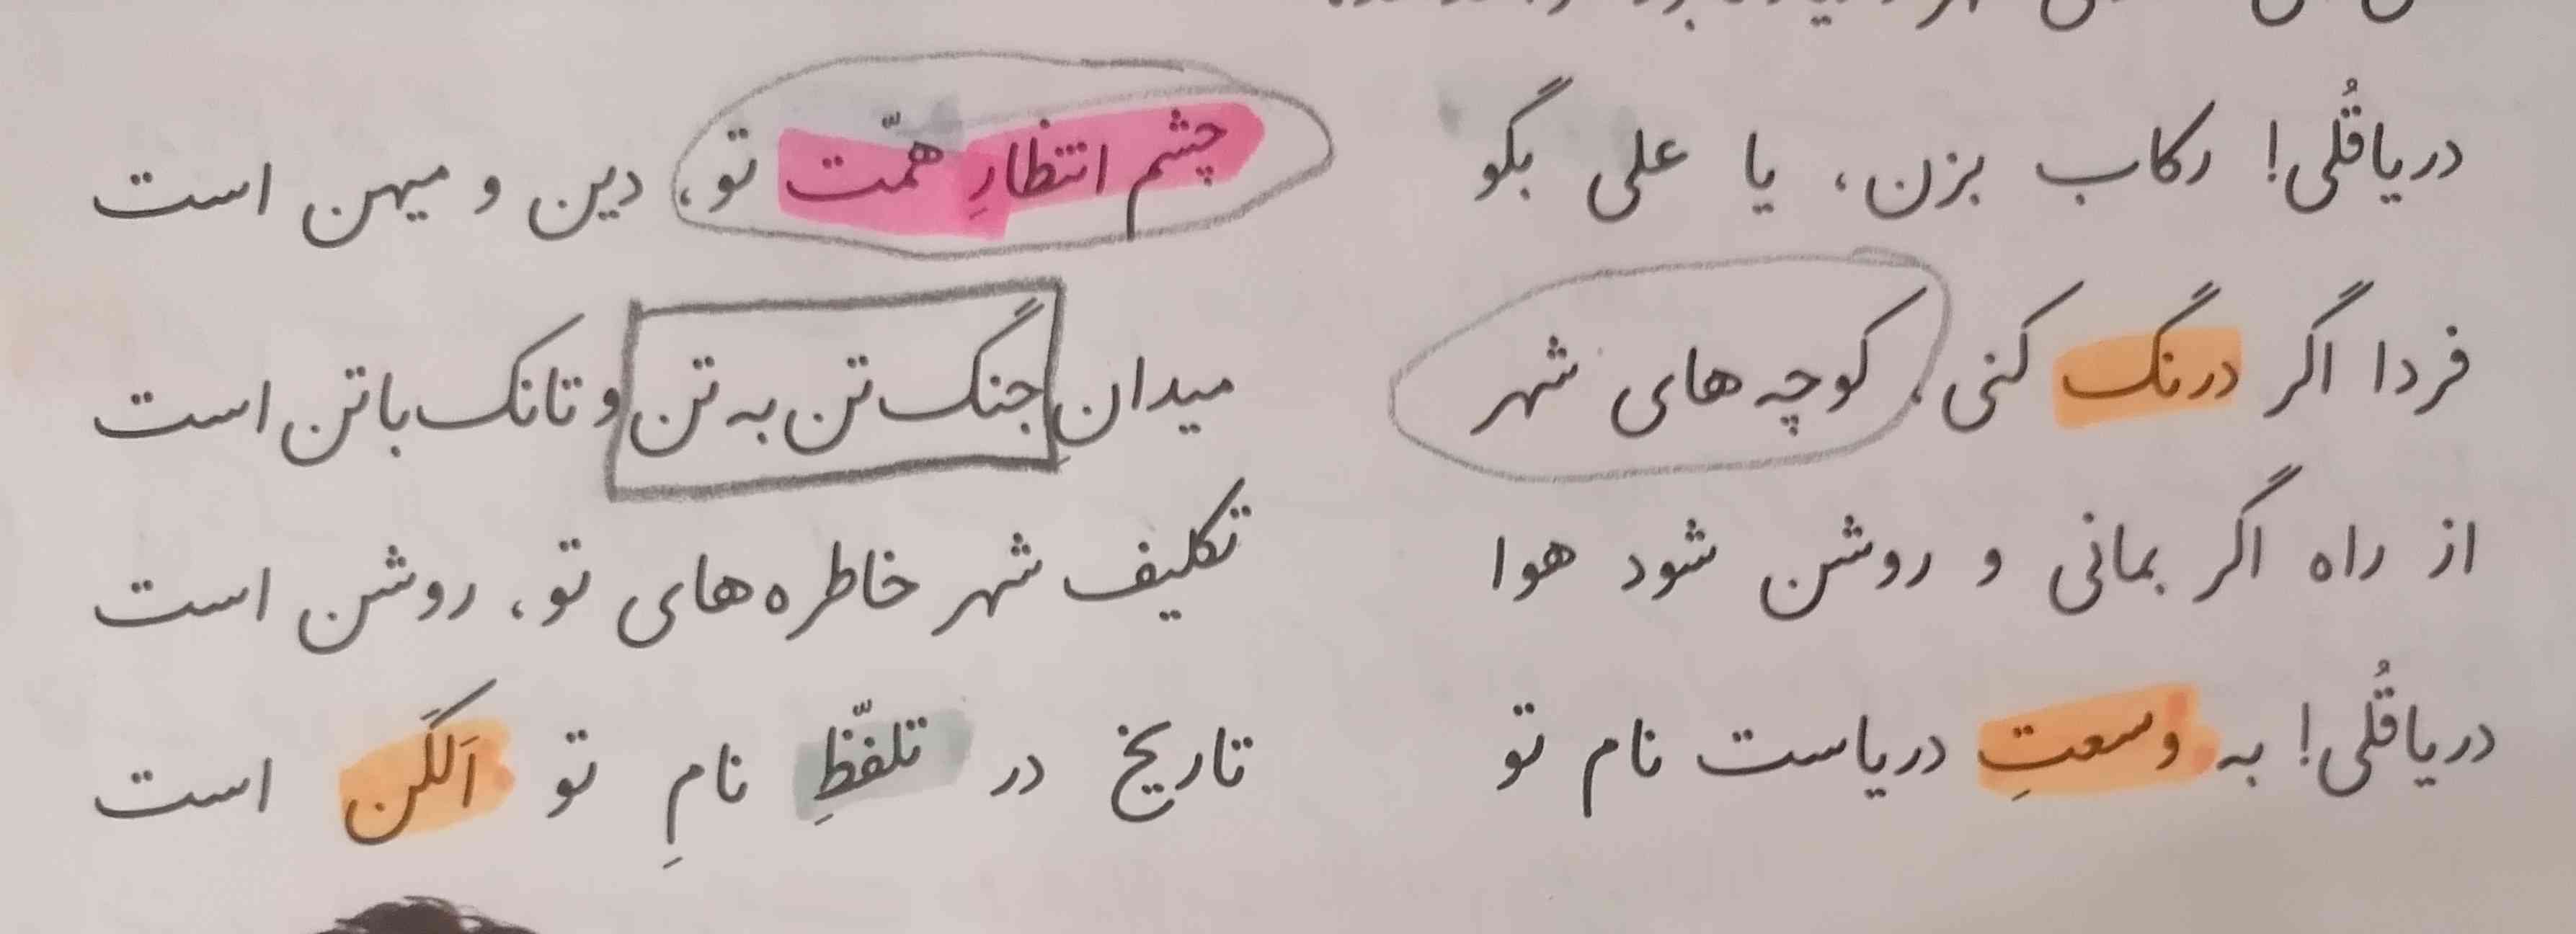 دریاقُلی! رکاب بزن، یا علی بگو چشم انتظارِ همّت تو، دین و میهن است
فردا اگر درنگ کنی، کوچه‌های شهر میدانِ جنگ تن به تن و تانک با تن است
از راه اگر بمانی و روشن شود هوا تکلیف شهر خاطره‌های تو، روشن است
دریاقُلی! به وسعتِ دریاست نام تو تاریخ در تلفّظِ نامِ تو اَلکَن است